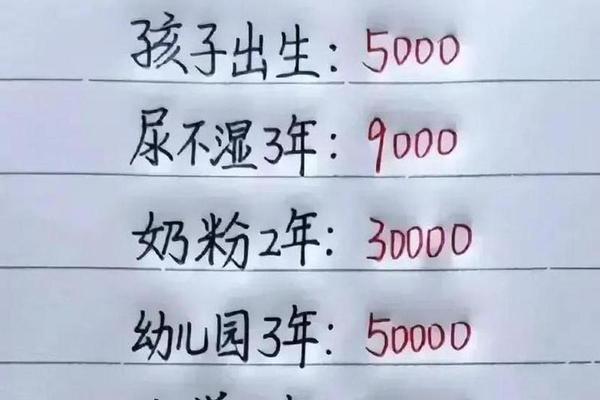 孩子出生：5000
尿不湿3年：9000
奶粉2年：30000
幼儿园3年：50000